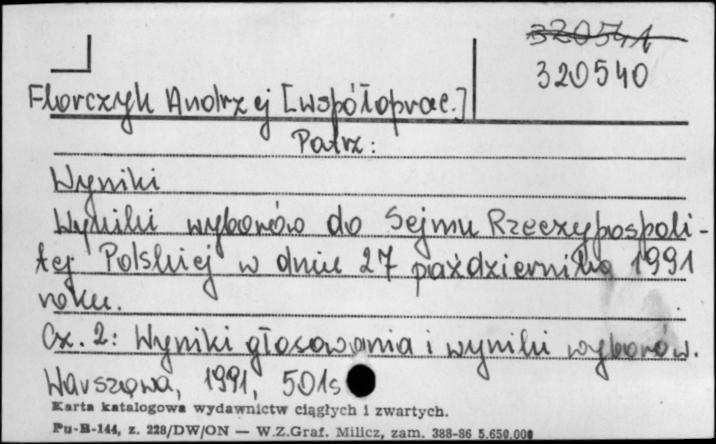 320541
320540
Florczyk Andrzej [współoprac.]
Patrz:
Wyniki
Wyniki wyborów do Sejmu Rzeczypospoli-
tej Polskiej w dniu 27 października 1991
roku.
Cz. 2: Wyniki głosowania i wyniki wyborów.
Warszawa, 1991, 501s
Karta katalogowa wydawnictw ciągłych i zwartych.
Pu-B-144, z. 228/DW/ON — W.Z.Graf. Milicz, zam. 388-86 5.650.000